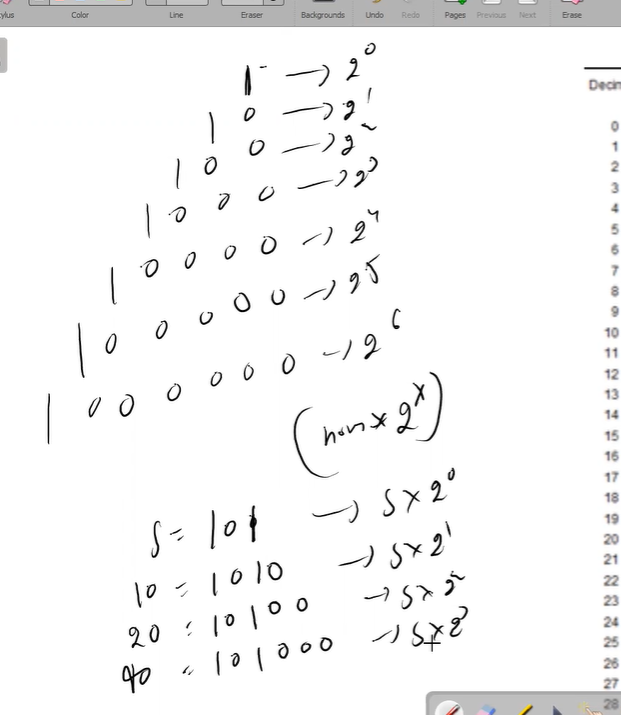 ylus
Color
Line
Eraser
Backgrounds
Undo
Redo
Pages
Previous
Next
Erase
1 → 2^0
1 0 → 2^1
1 0 0 → 2^2
1 0 0 0 → 2^3
1 0 0 0 0 → 2^4
1 0 0 0 0 0 → 2^5
1 0 0 0 0 0 0 → 2^6
(num × 2^x)
5 = 101 → 5 × 2^0
10 = 1010 → 5 × 2^1
20 = 10100 → 5 × 2^2
40 = 101000 → 5 × 2^3
Decim
0
1
2
3
4
5
6
7
8
9
10
11
12
13
14
15
16
17
18
19
20
21
22
23
24
25
26
27
28